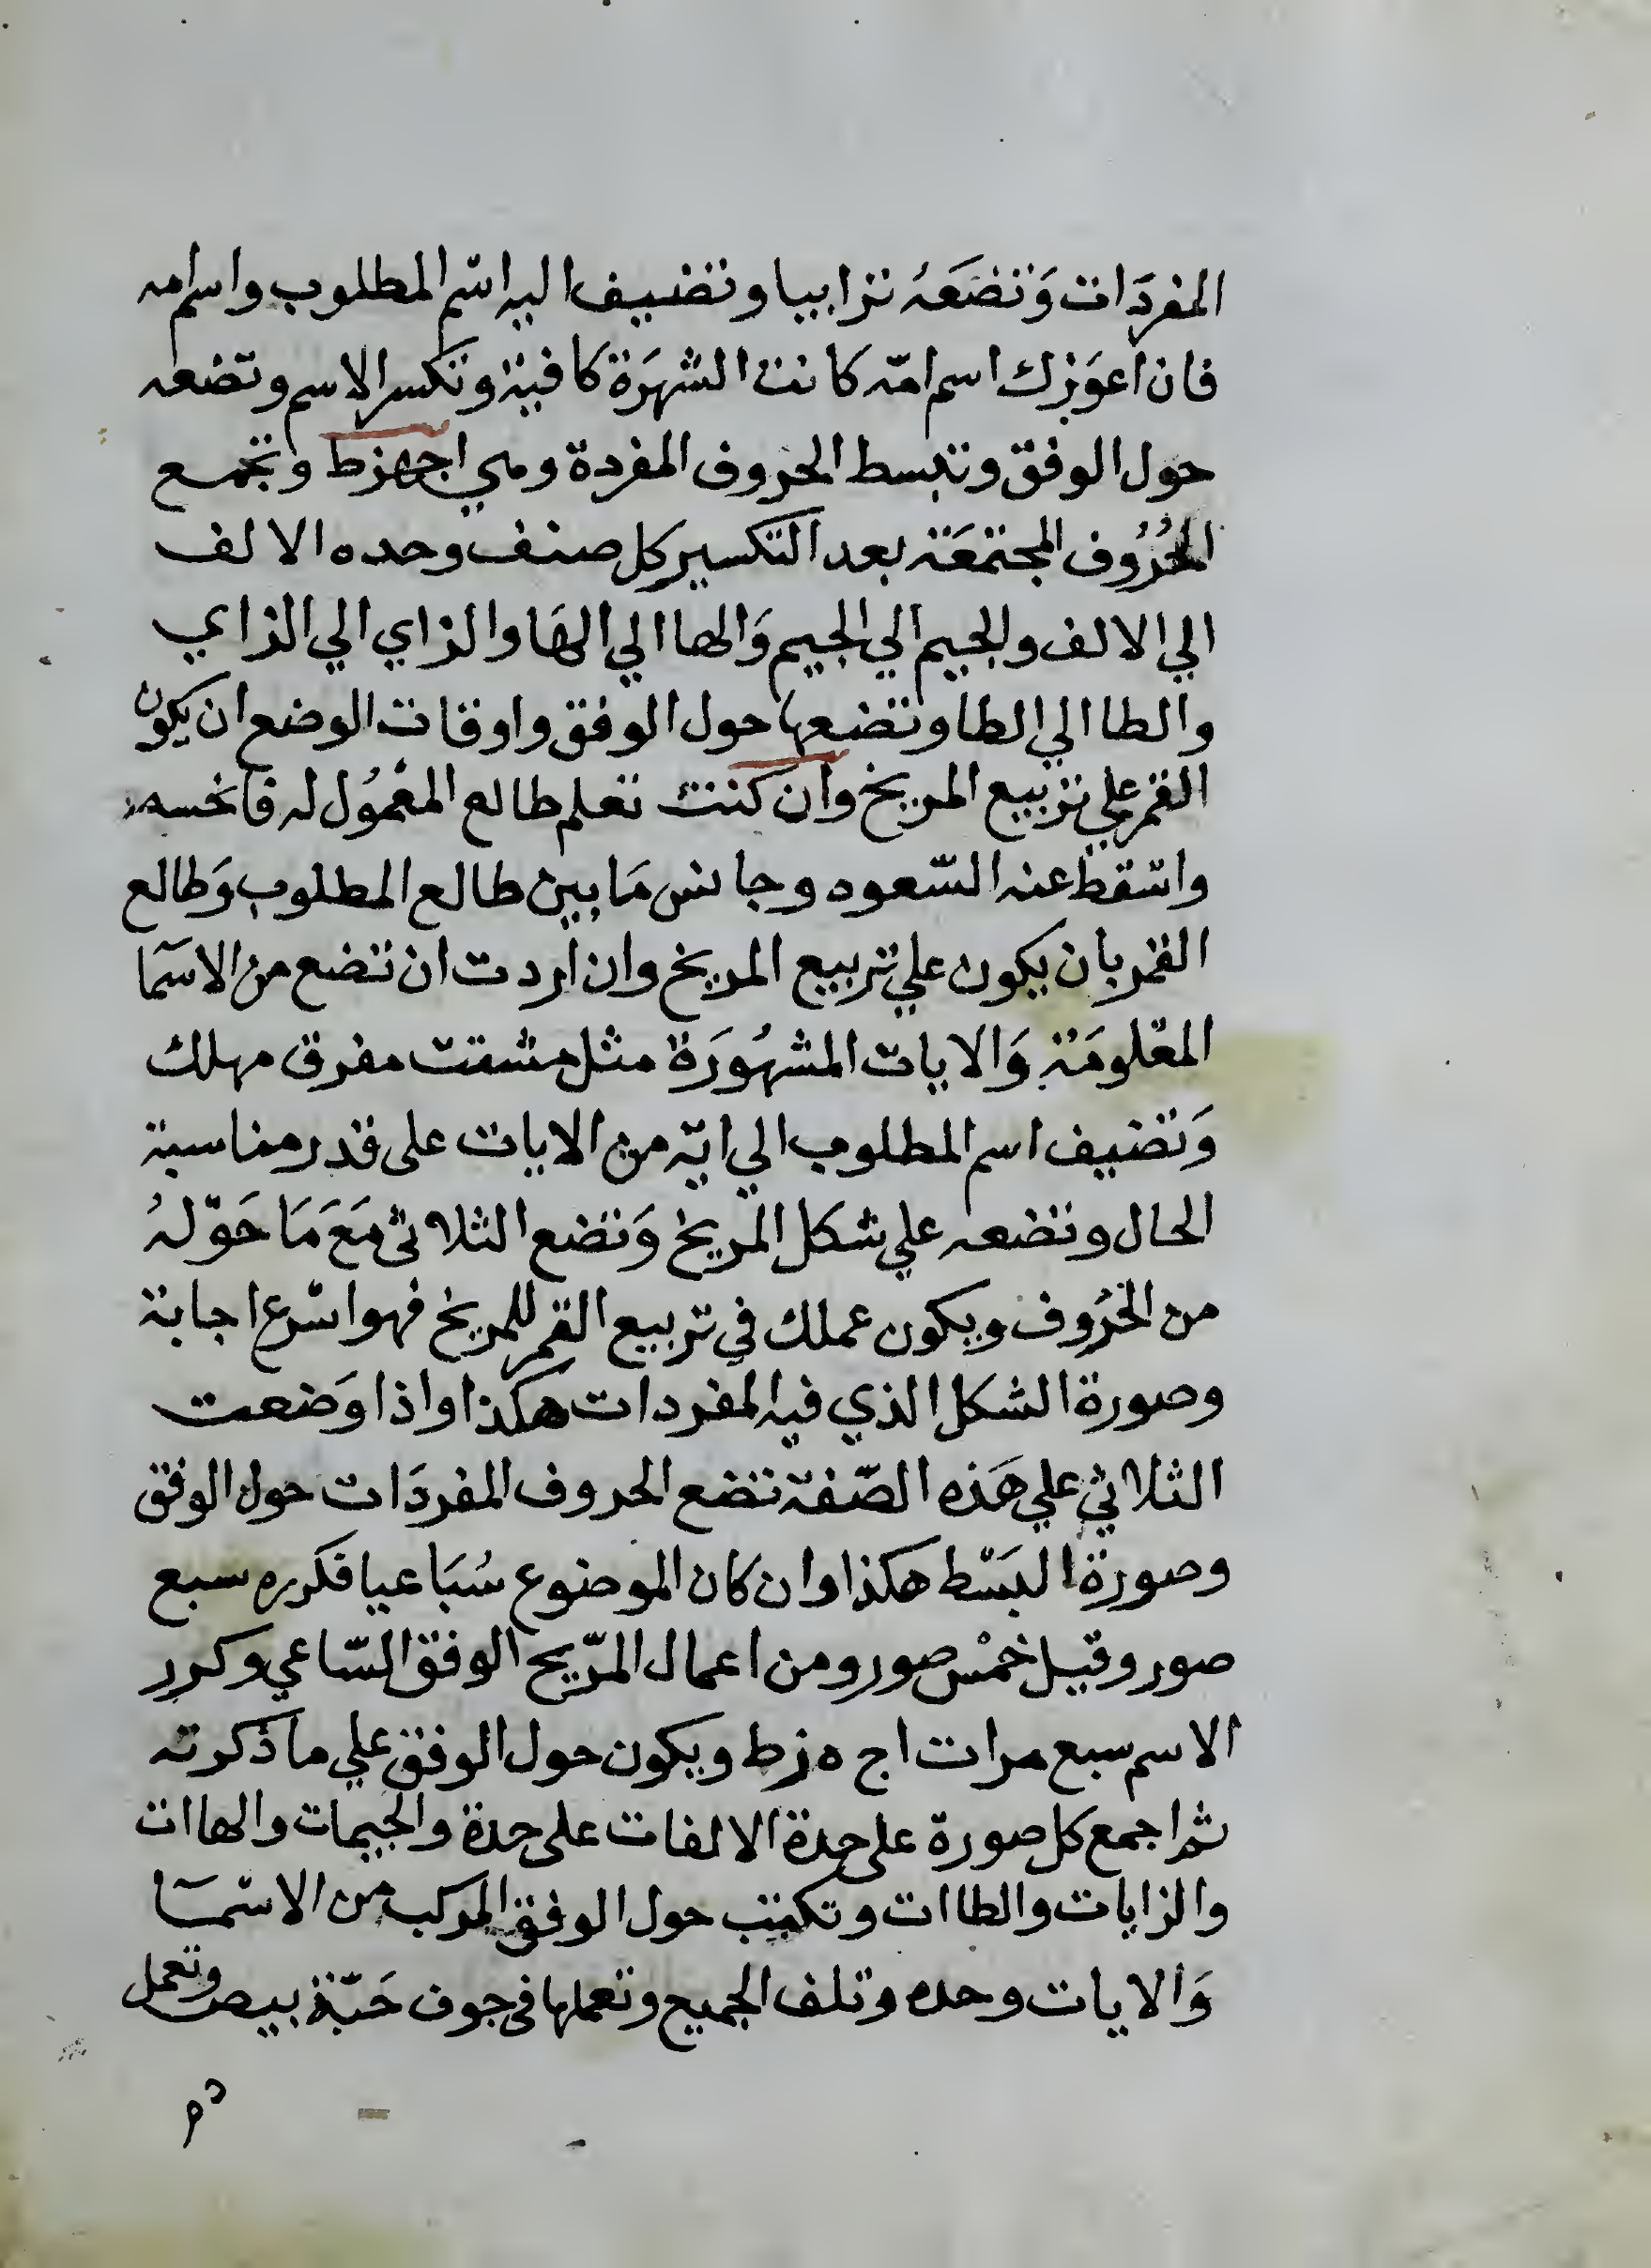 المفردَات وَتضعَهُ ترابيا وتضيف اليه اسم المطلوب واسم امه
فان اعوَزك اسم امّه كانت الشهرَة كافية وتكسر الاسم وتضعه
حول الوفق وتبسط الحروف المفردة وهي اجهزط وتجمع
الحُرُوف المجتمعَة بعد التكسير كل صنف وحده الالف
الي الالف والجيم الي الجيم وَالها الي الهَا والزاي الي الزاي
والطا الي الطا وتضعها حول الوفق واوقات الوضع ان يكون
القمر علي تربيع المريخ وان كنت تعلم طالع المعْمُول له فانحسه
واسْقط عنه السّعود وجانس مَا بين طالع المطلوب وَطالع
القمر بان يكون علي تربيع المريخ وان اردت ان تضع من الاسمَا
المعْلومَة وَالايات المشهُورَة مثل مشتت مفرق مهلك
وَتضيف اسم المطلوب الي ايّة من الايات على قدر مناسبة
الحال وتضعه علي شكل المريخ وَتضع الثلاثى مَعَ مَا حَوْلهُ
من الحُرُوف ويكون عملك في تربيع القمر للمريخ فهو اسْرع اجابة
وصورة الشكل الذي فيه المفردات هكذا واذا وَضعت
الثلاثي علي هَذه الصّفة تضع الحروف المفردَات حول الوفق
وصورة البَسْط هكذا وان كان الموضوع سُبَاعيا فكرره سبع
صور وقيل خمْس صور ومن اعمال المرّيح الوفق السّاعي وكرر
الاسم سبع مرات اج ه زط ويكون حول الوفق علي ما ذكرته
ثم اجمع كل صورة على حدة الالفات على حدة والجيمات والهاات
والزايات والطاات وتكتب حول الوفق المركب من الاسْمَا
وَالايات وحده وتلف الجميع وتعملها فى جوف حَبّة بيض وتعمل